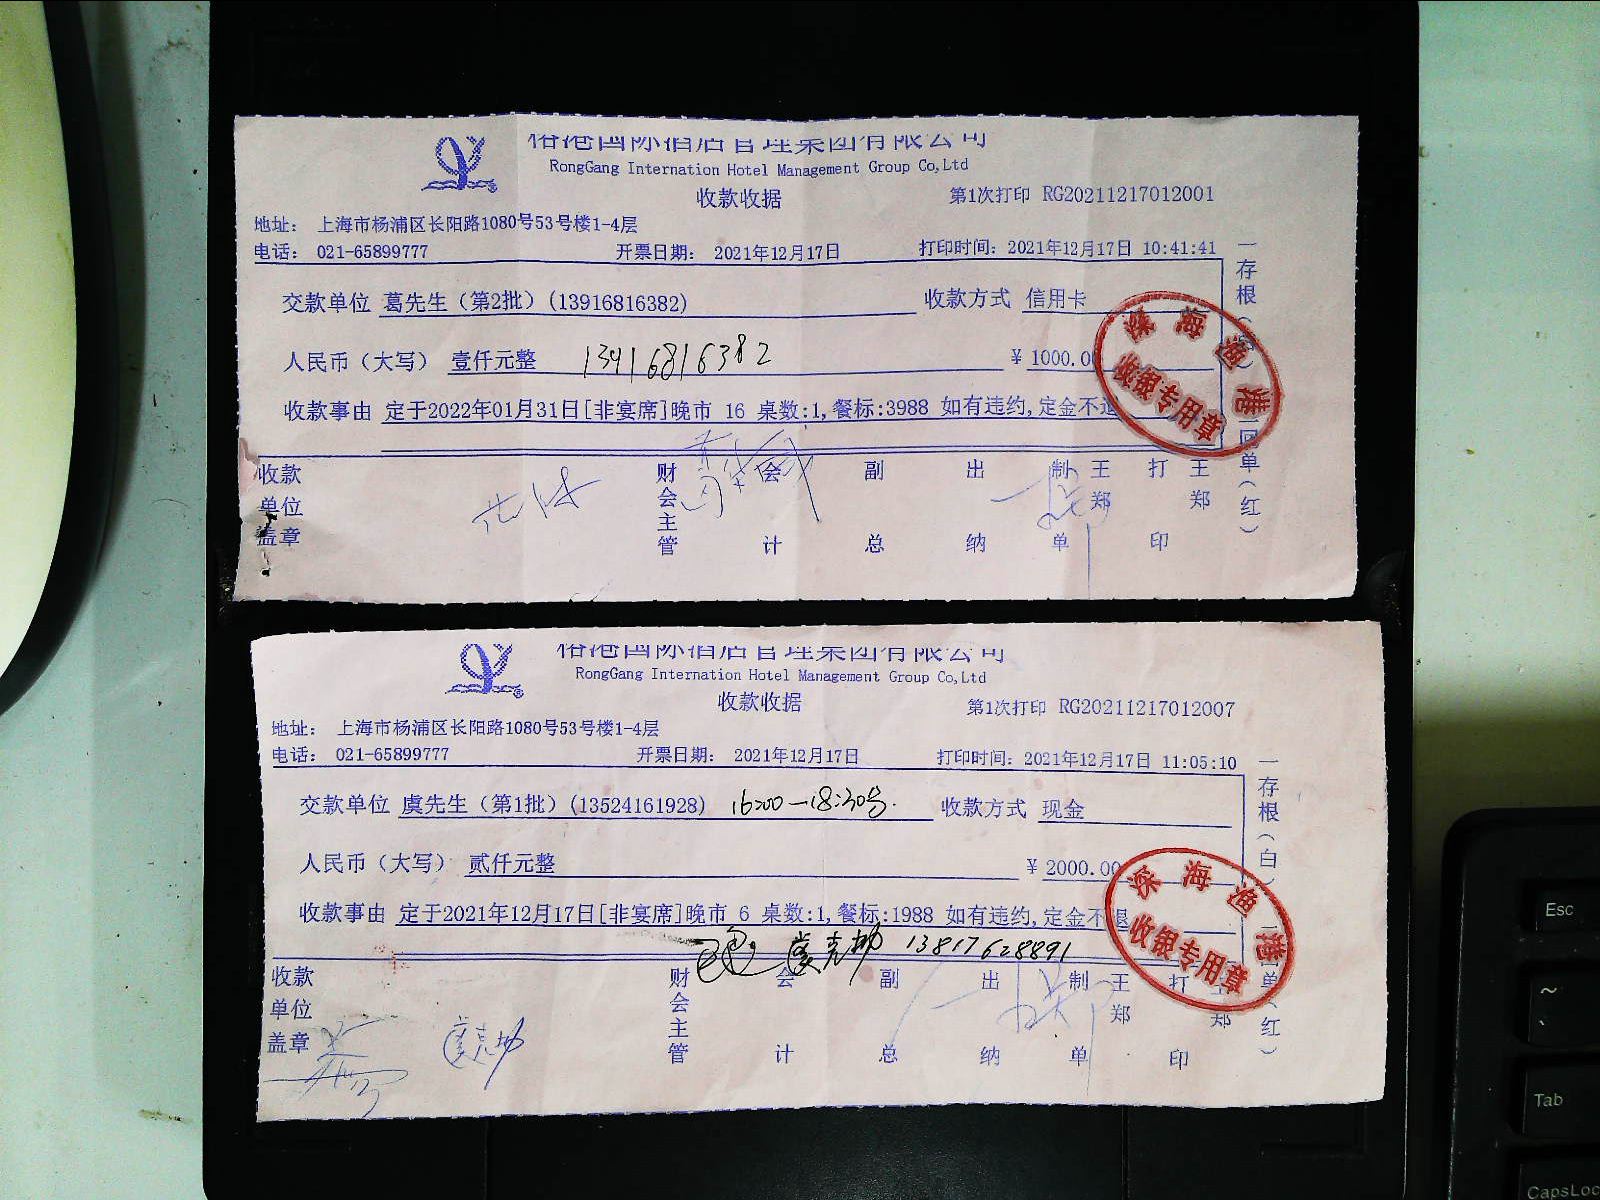 榕港国际酒店管理集团有限公司
RongGang Internation Hotel Management Group Co,Ltd
收款收据 第1次打印 RG20211217012001
地址： 上海市杨浦区长阳路1080号53号楼1-4层
电话： 021-65899777 开票日期： 2021年12月17日 打印时间：2021年12月17日 10:41:41
交款单位 葛先生（第2批）(13916816382) 收款方式 信用卡
人民币（大写） 壹仟元整 13916816382 ￥ 1000.00
收款事由 定于2022年01月31日[非宴席]晚市 16 桌数:1,餐标:3988 如有违约,定金不退
收款单位盖章 财会主管 会计 副总 出纳 制单 王郑 打印 王郑
一存根（ 二回单（红）
深海渔港
收银专用章
榕港国际酒店管理集团有限公司
RongGang Internation Hotel Management Group Co,Ltd
收款收据 第1次打印 RG20211217012007
地址： 上海市杨浦区长阳路1080号53号楼1-4层
电话： 021-65899777 开票日期： 2021年12月17日 打印时间：2021年12月17日 11:05:10
交款单位 虞先生（第1批）(13524161928) 16:00—18:30 收款方式 现金
人民币（大写） 贰仟元整 ￥ 2000.00
收款事由 定于2021年12月17日[非宴席]晚市 6 桌数:1,餐标:1988 如有违约,定金不退
13817628891
收款单位盖章 财会主管 会计 副总 出纳 制单 王郑 打印 王郑
一存根（白） 二回单（红）
深海渔港
收银专用章
Esc
~
`
Tab
CapsLoc